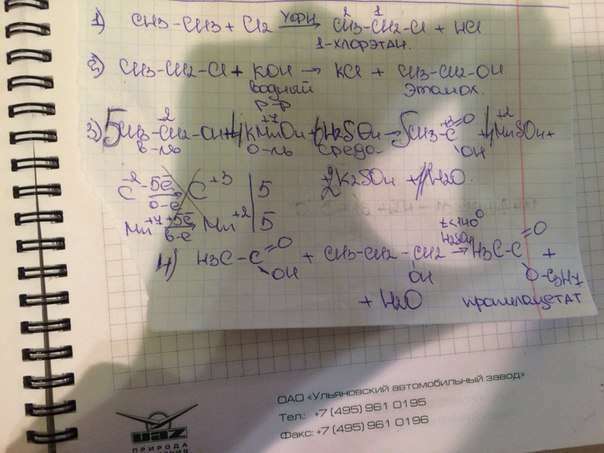 1) CH3-CH3 + Cl2 УФИ→ CH3-CH2-Cl + HCl
2 1
1-хлорэтан.
2) CH3-CH2-Cl + KOH → KCl + CH3-CH2-OH
водный этанол.
р-р
3) 5CH3-CH2-OH + 4KMnO4 + 6H2SO4 → 5CH3-C=O OH + 4MnSO4 +
в-ль о-ль среда
2K2SO4 + 11H2O
C -5ē C+3 | 5
о-е
Mn+7 +5ē Mn+2 | 5
в-е
4) H3C-C=O OH + CH3-CH2-CH2 OH t<140° H2SO4→ H3C-C=O O-C3H7 +
+ H2O пропилацетат
ОАО «Ульяновский автомобильный завод»
Тел.: +7 (495) 961 0195
Факс: +7 (495) 961 0196
UAZ
ПРИРОДА